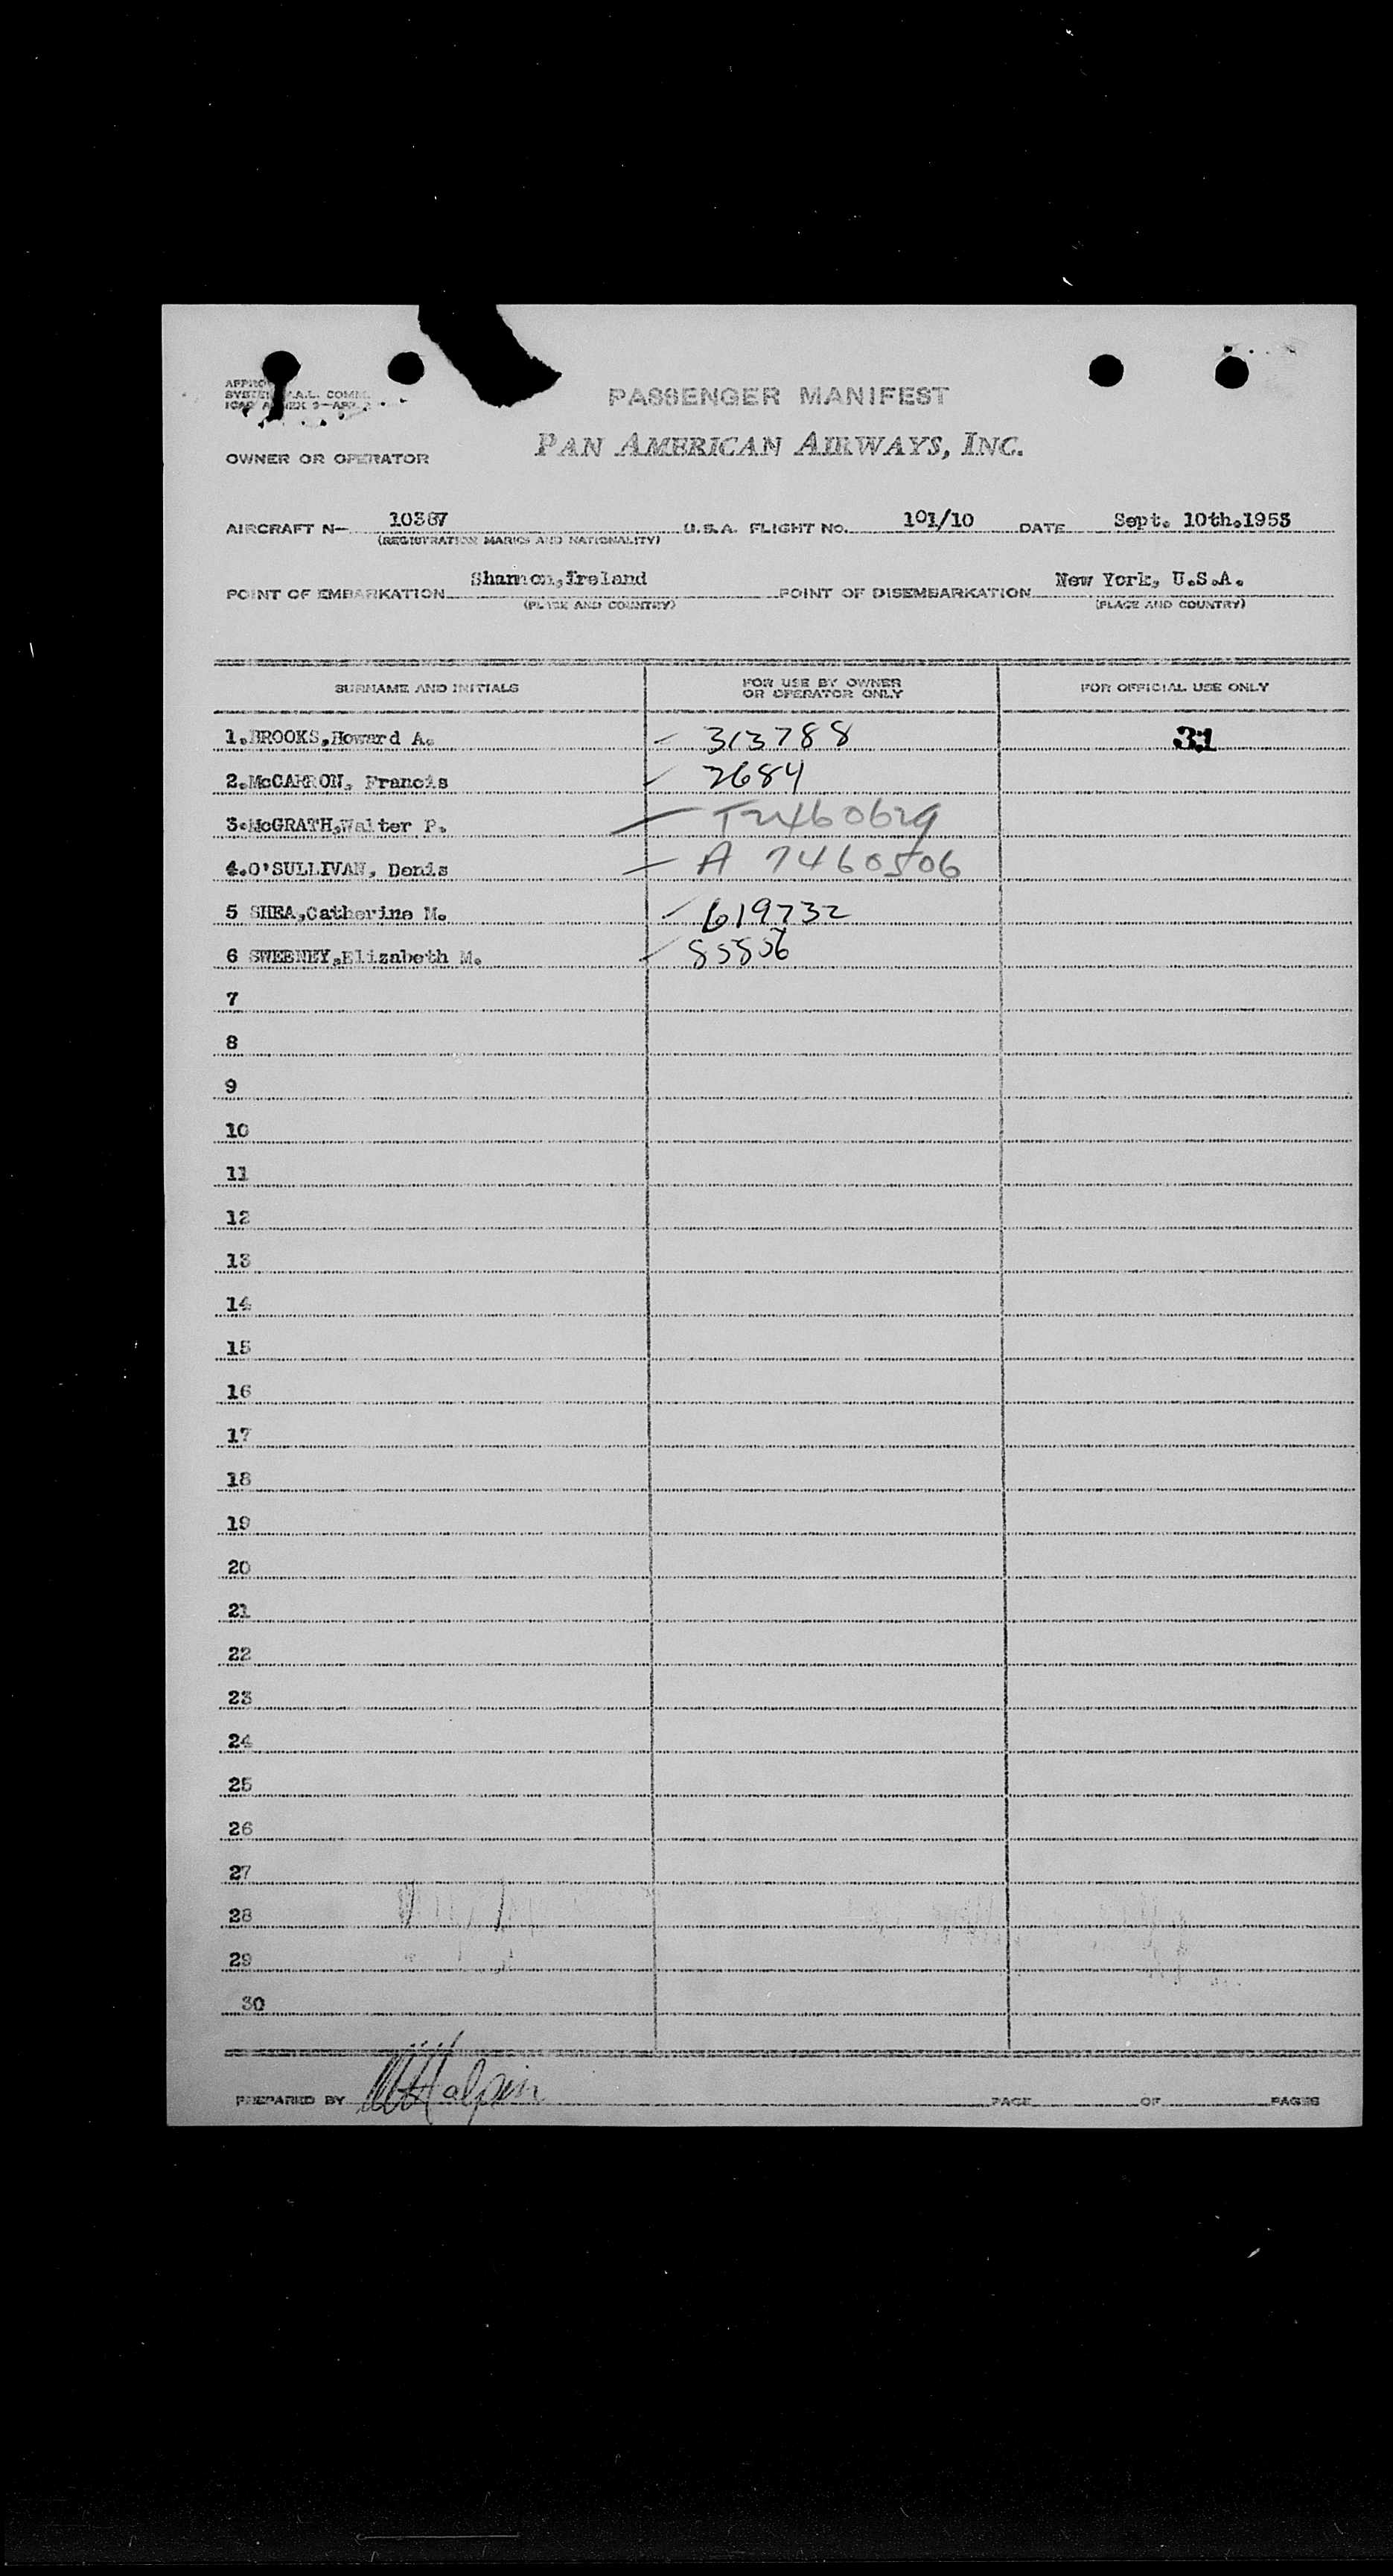 PASSENGER MANIFEST
PAN AMERICAN AIRWAYS, INC.
OWNER OR OPERATOR
AIRCRAFT N- 10367 U.S.A. FLIGHT NO. 101/10 DATE Sept. 10th.1953
(REGISTRATION MARKS AND NATIONALITY)
POINT OF EMBARKATION Shannon,Ireland POINT OF DISEMBARKATION New York, U.S.A.
(PLACE AND COUNTRY) (PLACE AND COUNTRY)
SURNAME AND INITIALS FOR USE BY OWNER OR OPERATOR ONLY FOR OFFICIAL USE ONLY
1.BROOKS,Howard A. 313788 31
2.McCARRON, Francis 2684
3.McGRATH,Walter P.
4.O'SULLIVAN, Denis A 7460506
5 SHEA,Catherine M. 619732
6 SWEENEY,Elizabeth M.
7
8
9
10
11
12
13
14
15
16
17
18
19
20
21
22
23
24
25
26
27
28
29
30
PREPARED BY Halpin PAGE OF PAGES